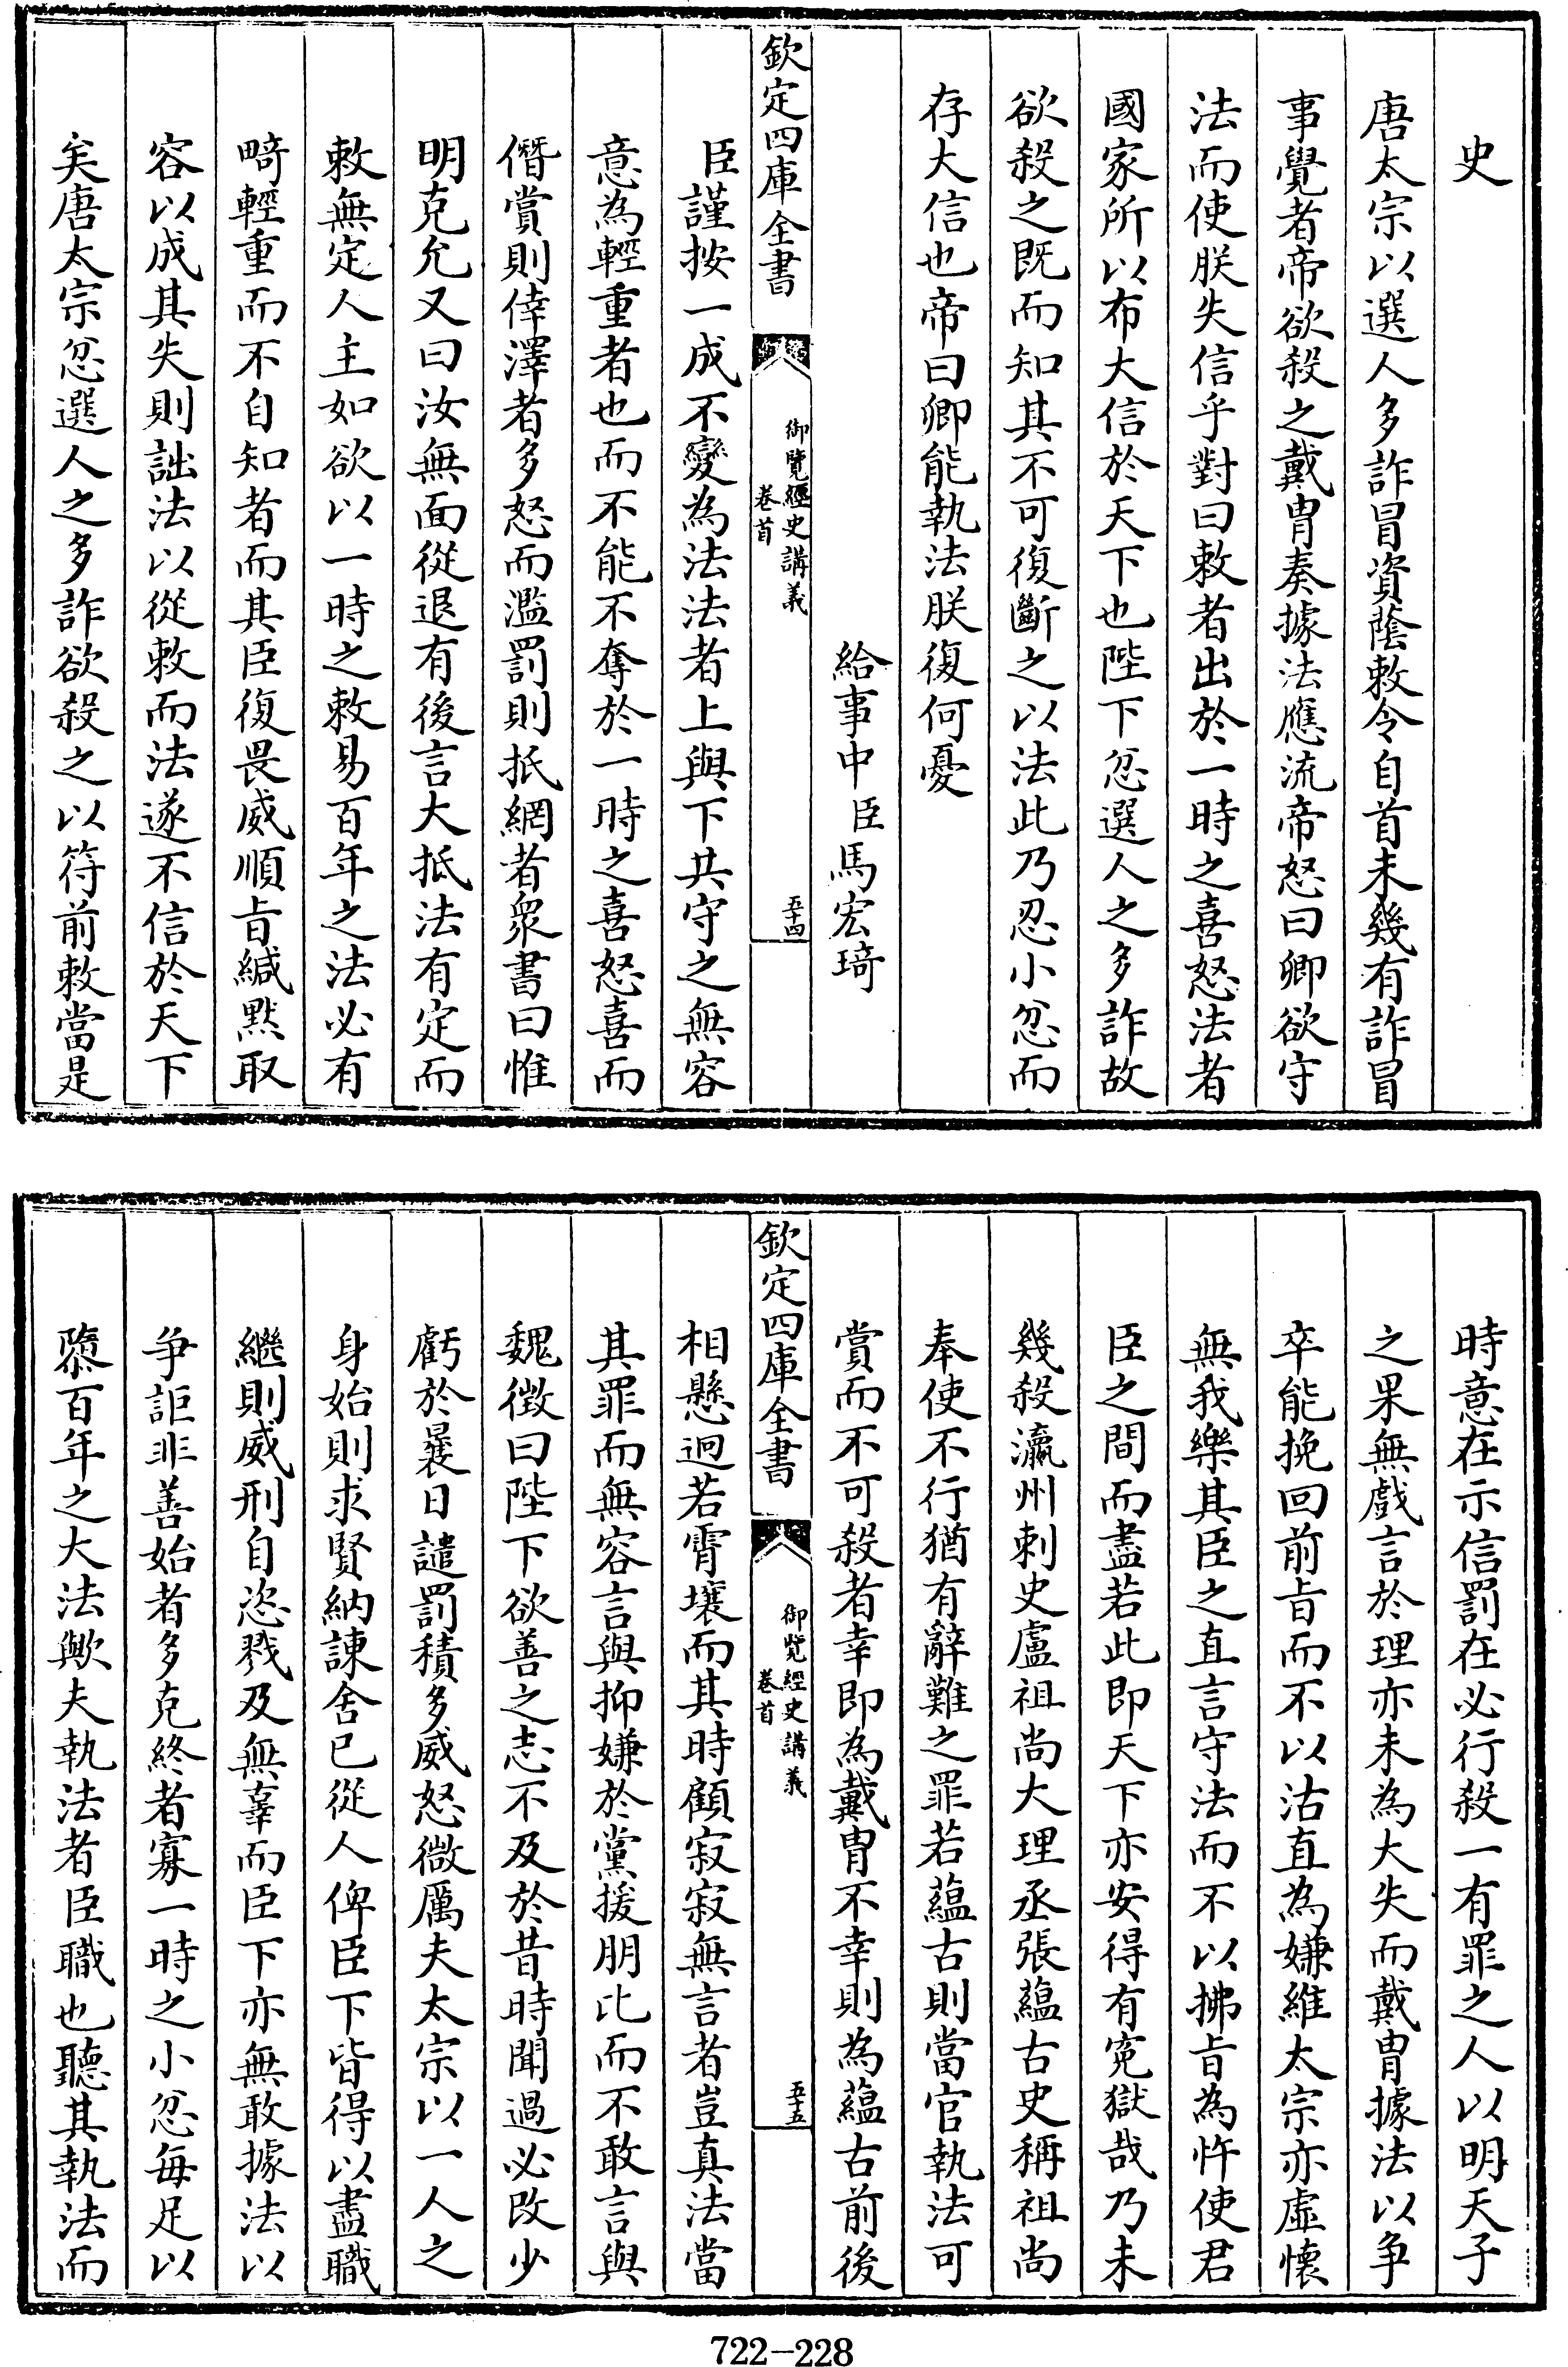 史
唐太宗以選人多詐冒資蔭敕令自首未幾有詐冒
事覺者帝欲殺之戴胄奏據法應流帝怒曰卿欲守
法而使朕失信乎對曰敕者出於一時之喜怒法者
國家所以布大信於天下也陛下忿選人之多詐故
欲殺之既而知其不可復斷之以法此乃忍小忿而
存大信也帝曰卿能執法朕復何憂
給事中臣馬宏琦
欽定四庫全書
御覽經史講義
卷首
五十四
臣謹按一成不變為法法者上與下共守之無容
意為輕重者也而不能不奪於一時之喜怒喜而
僭賞則倖澤者多怒而濫罰則抵網者衆書曰惟
明克允又曰汝無面從退有後言大抵法有定而
敕無定人主如欲以一時之敕易百年之法必有
畸輕重而不自知者而其臣復畏威順旨緘默取
容以成其失則詘法以從敕而法遂不信於天下
矣唐太宗忿選人之多詐欲殺之以符前敕當是
時意在示信罰在必行殺一有罪之人以明天子
之果無戲言於理亦未為大失而戴胄據法以爭
卒能挽回前旨而不以沽直為嫌維太宗亦虛懷
無我樂其臣之直言守法而不以拂旨為忤使君
臣之間而盡若此即天下亦安得有寃獄哉乃未
幾殺瀛州刺史盧祖尚大理丞張蘊古史稱祖尚
奉使不行猶有辭難之罪若蘊古則當官執法可
賞而不可殺者幸即為戴胄不幸則為蘊古前後
欽定四庫全書
御覽經史講義
卷首
五十五
相懸迥若霄壤而其時顧寂寂無言者豈真法當
其罪而無容言與抑嫌於黨援朋比而不敢言與
魏徵曰陛下欲善之志不及於昔時聞過必改少
虧於曩日譴罰積多威怒微厲夫太宗以一人之
身始則求賢納諫舍已從人俾臣下皆得以盡職
繼則威刑自恣戮及無辜而臣下亦無敢據法以
爭詎非善始者多克終者寡一時之小忿每足以
隳百年之大法歟夫執法者臣職也聽其執法而
722-228